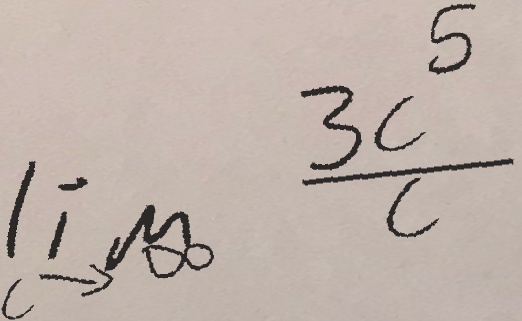 lim c→∞ 3c^5/c